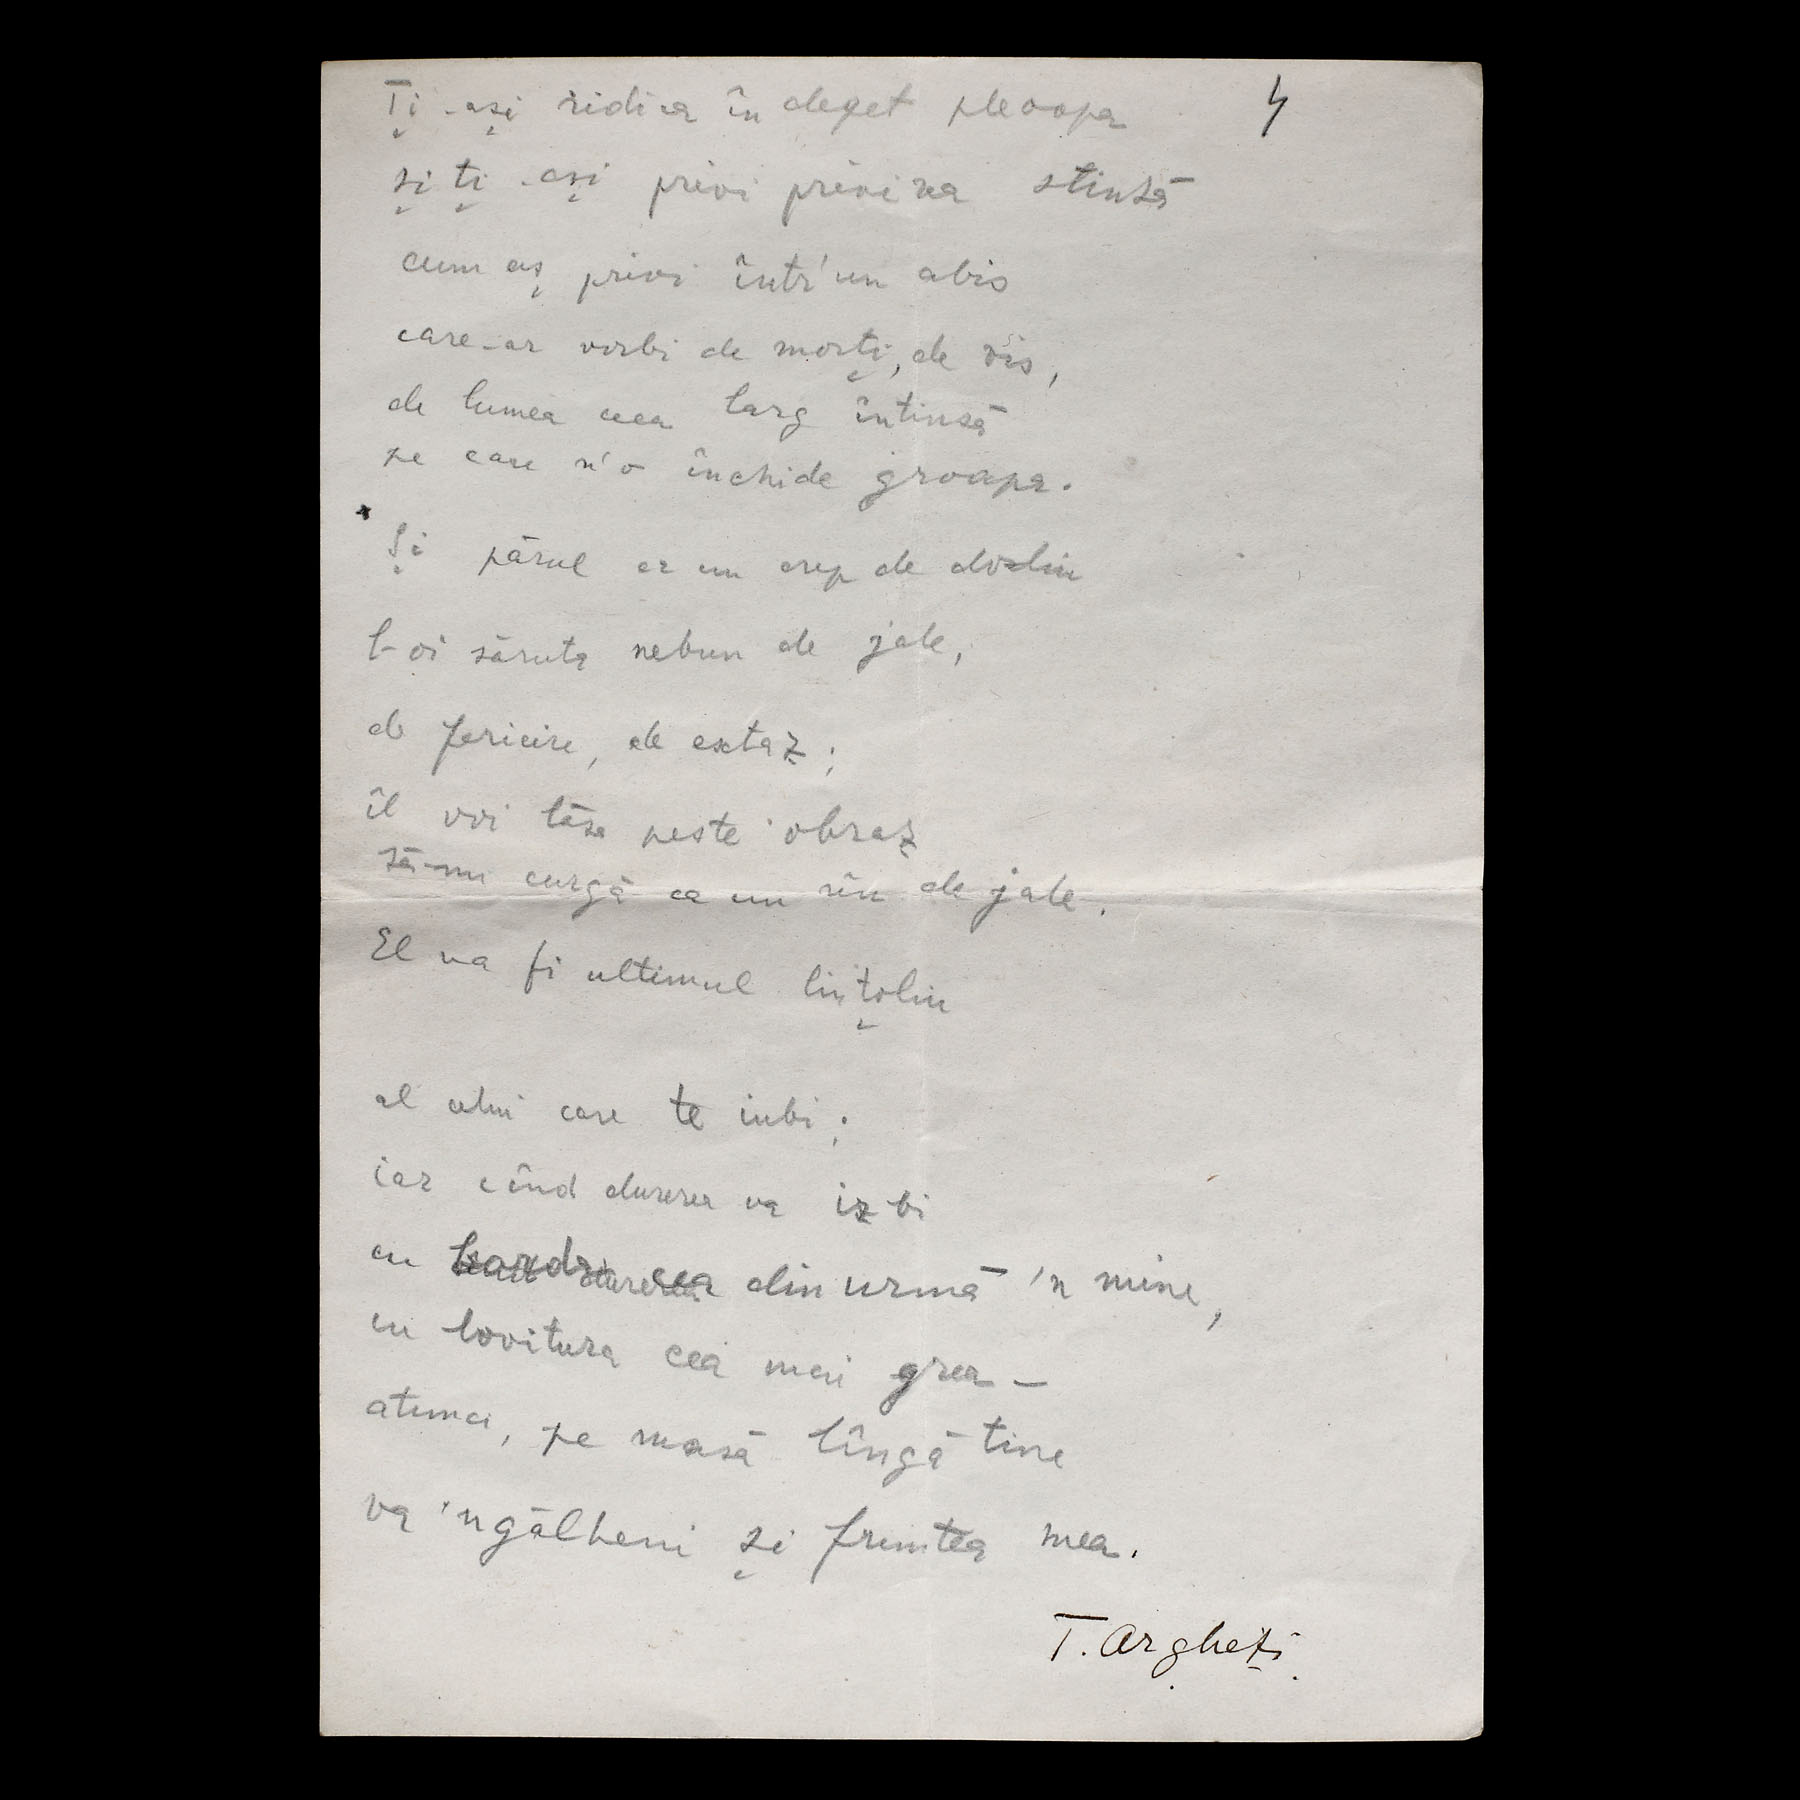 4
Ți-ași ridica în deget pleoapa
și ți-ași privi privirea stinsă
cum aș privi într'un abis
care-ar vorbi de morți, de vis,
de lumea ceea larg întinsă
pe care n'o închide groapa.
Și părul ca un crep de doliu
l-oi săruta nebun de jale,
de fericire, de extaz;
îl voi lăsa peste obraz
să-mi curgă ca un rîu de jale.
El va fi ultimul lințoliu
al celui care te iubi;
iar cînd durerea va izbi
cu barda cea din urmă 'n mine,
cu lovitura cea mai grea –
atunci, pe masă lîngă tine
va 'ngălbeni și fruntea mea.
T. Arghezi.